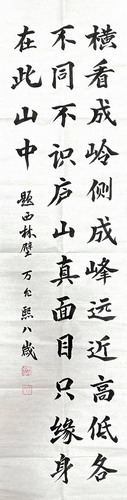 横看成岭侧成峰远近高低各
不同不识庐山真面目只缘身
在此山中 题西林壁 万允熙八岁